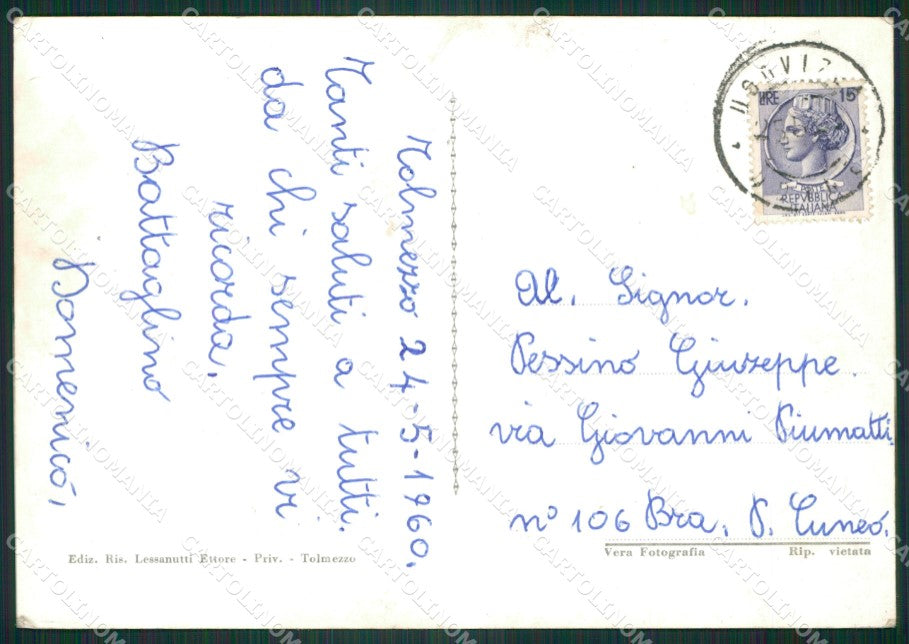 Tolmezzo 24-5-1960.
Tanti saluti a tutti.
da chi sempre vi
ricorda.
Battaglino
Domenico,
LIRE 15
POSTE
REPVBBLICA
ITALIANA
Al. Signor.
Pessino Giuseppe.
via Giovanni Piumatti
n° 106 Bra. P. Cuneo.
Ediz. Ris. Lessanutti Ettore - Priv. - Tolmezzo
Vera Fotografia Rip. vietata
CARTOLINOMANIA